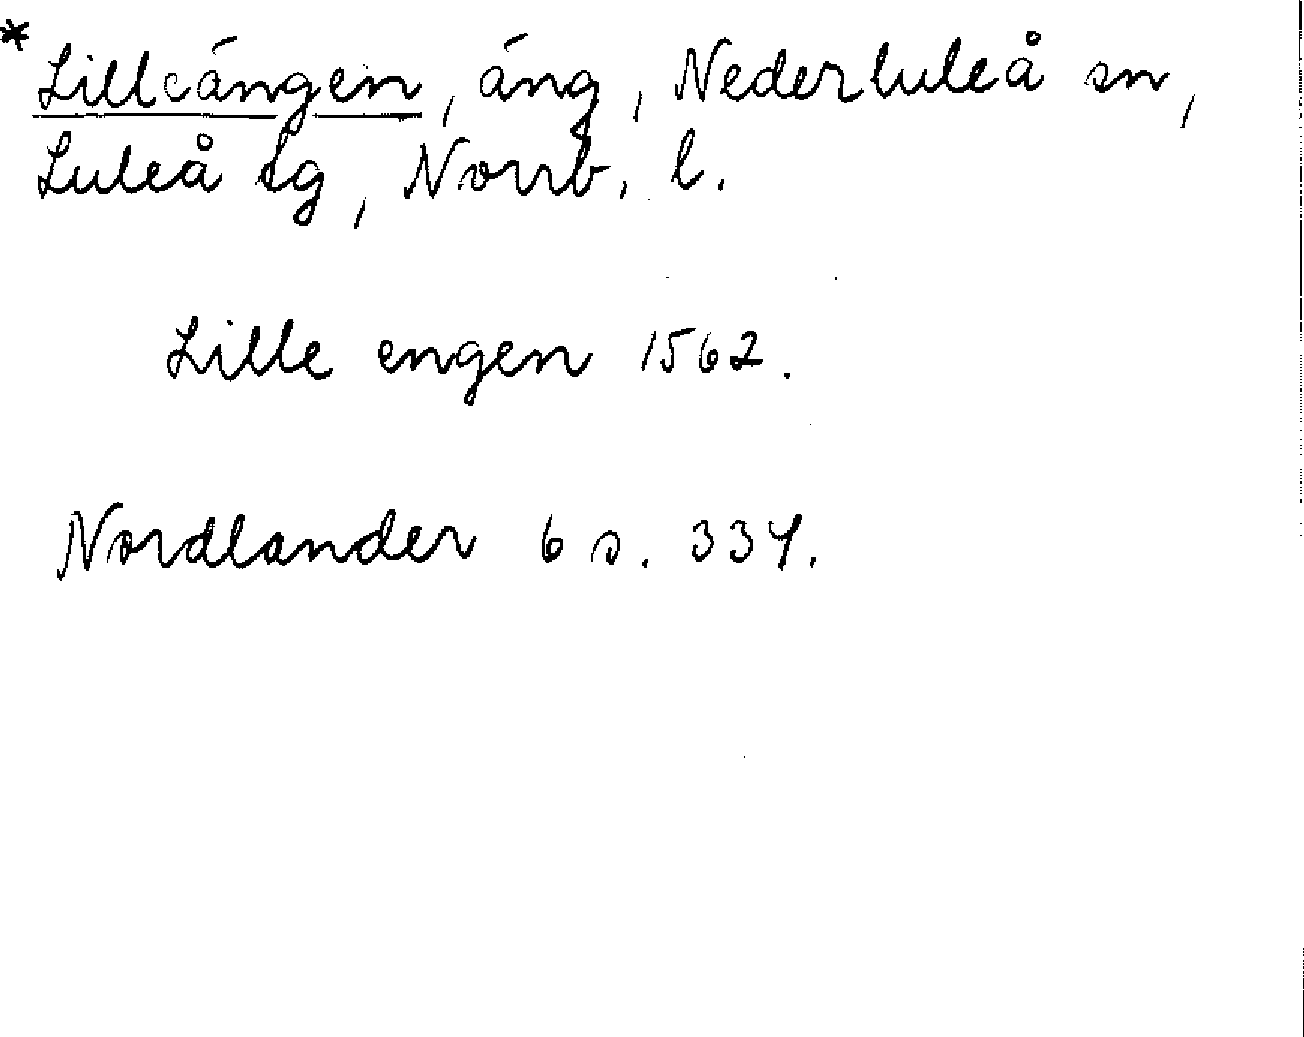 *Lilleängen, äng, Nederluleå sn,
Luleå tg, Norrb. l.
Lille engen 1562.
Nordlander 6 s. 334.